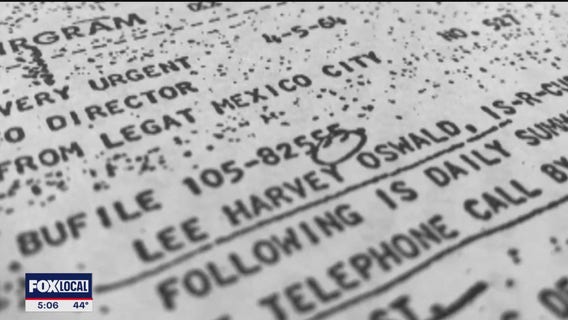 IRGRAM
4-5-64
NO. 527
VERY URGENT
O DIRECTOR
FROM LEGAT MEXICO CITY
BUFILE 105-82555
LEE HARVEY OSWALD, IS-R-CU
FOLLOWING IS DAILY SUMM
TELEPHONE CALL BY
FOX LOCAL
5:06 44°